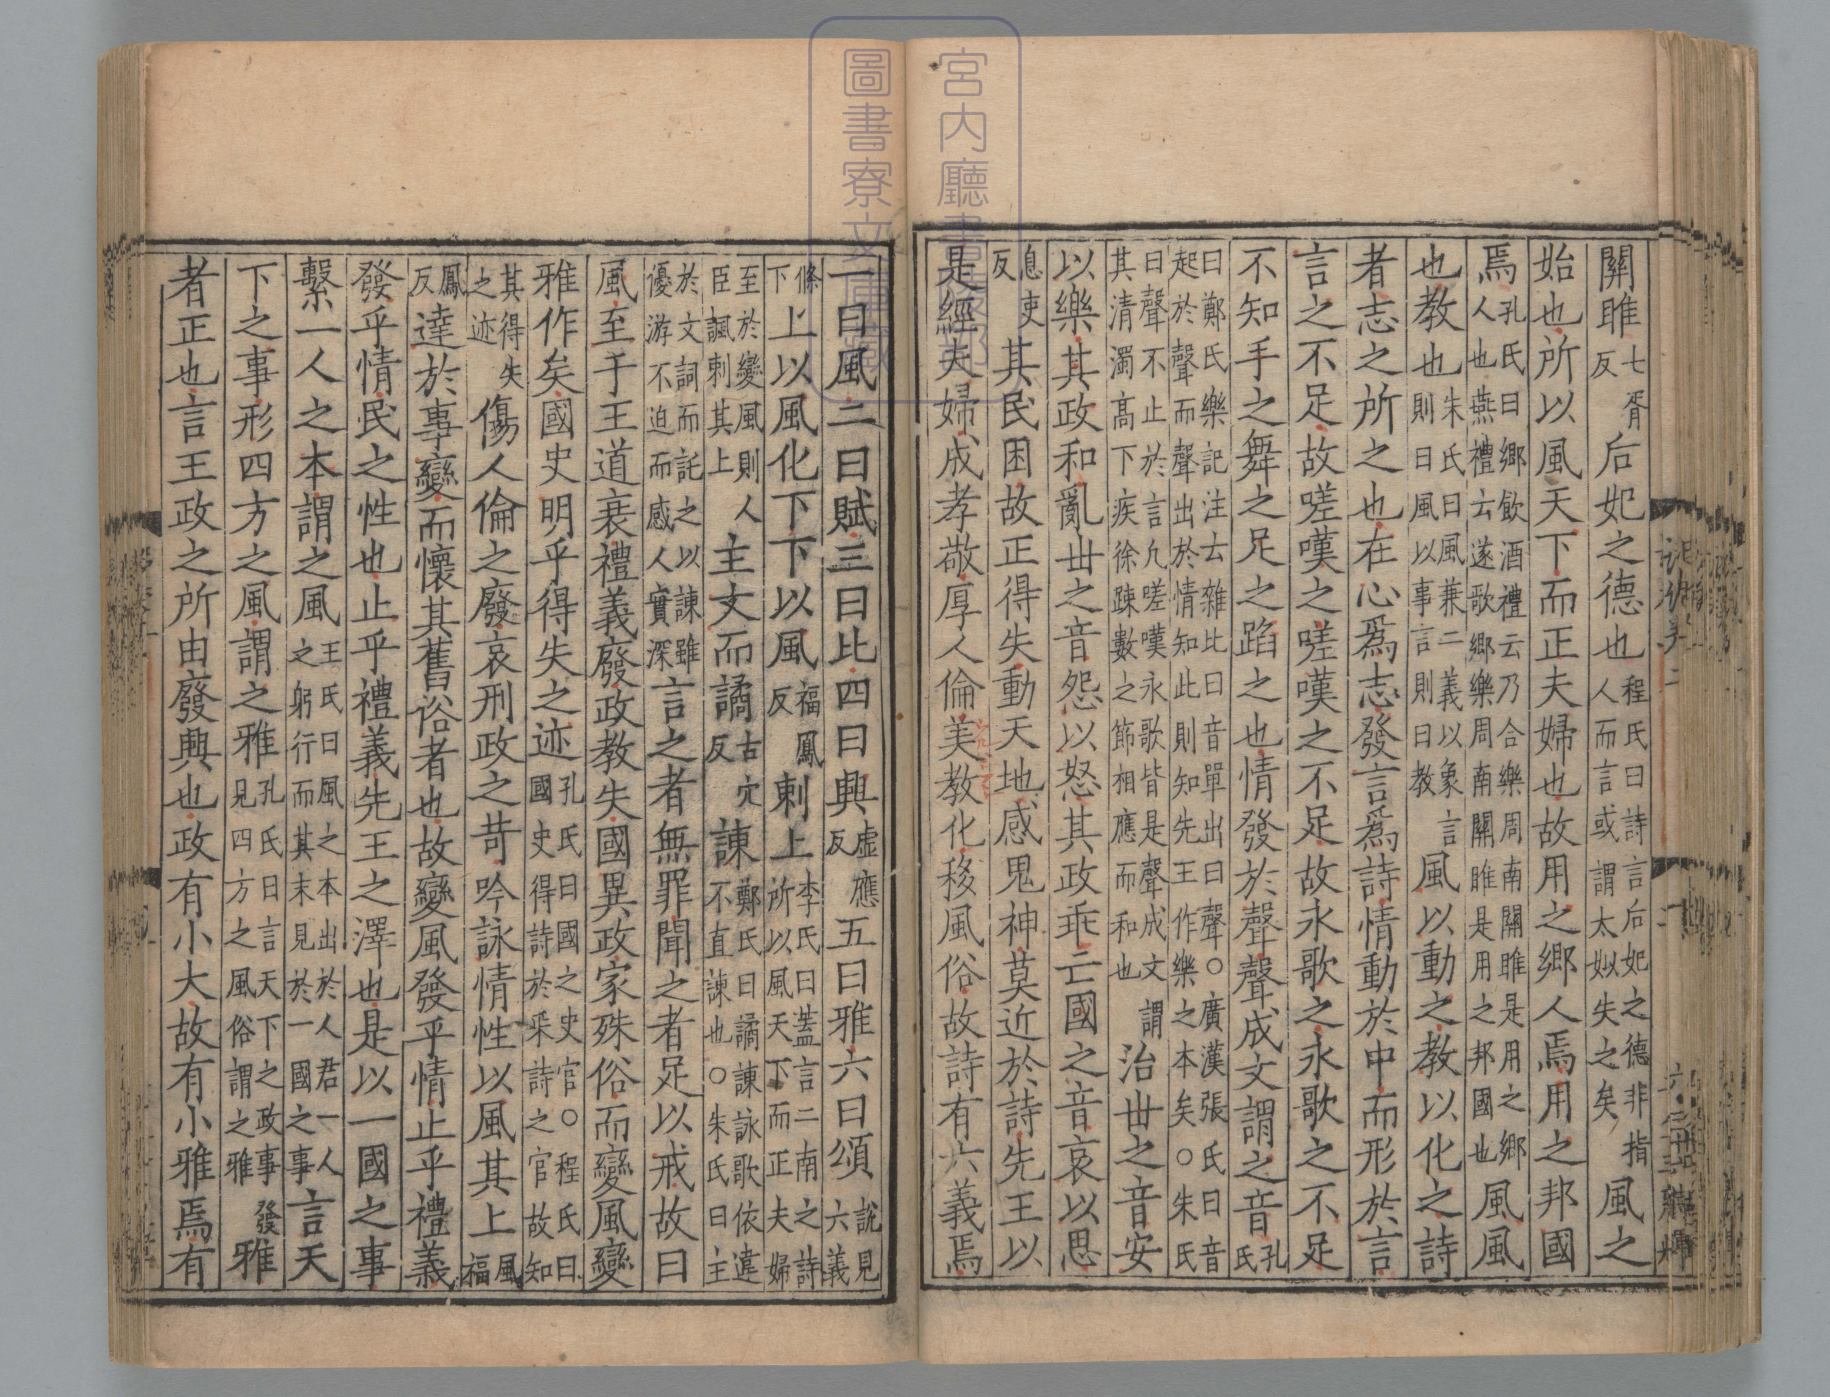 關雎七胥反后妃之德也程氏曰詩言后妃之德非指人而言或謂太姒失之矣風之
始也所以風天下而正夫婦也故用之鄉人焉用之邦國
焉孔氏曰鄉飲酒禮云乃合樂周南關雎是用之鄉人也燕禮云遂歌鄉樂周南關雎是用之邦國也風風
也教也朱氏曰風兼二義以象言則曰風以事言則曰教風以動之教以化之詩
者志之所之也在心爲志發言爲詩情動於中而形於言
言之不足故嗟嘆之嗟嘆之不足故永歌之永歌之不足
不知手之舞之足之蹈之也情發於聲聲成文謂之音孔氏
曰鄭氏樂記注云雜比曰音單出曰聲○廣漢張氏曰音起於聲而聲出於情知此則知先王作樂之本矣○朱氏
曰聲不止於言凡嗟嘆永歌皆是聲成文謂其清濁高下疾徐疎數之節相應而和也治世之音安
以樂其政和亂世之音怨以怒其政乖亡國之音哀以思
息吏反其民困故正得失動天地感鬼神莫近於詩先王以
是經夫婦成孝敬厚人倫美教化移風俗故詩有六義焉
一曰風二曰賦三曰比四曰興虛應反五曰雅六曰頌說見六義
條下上以風化下下以風福鳳反刺上李氏曰蓋言二南之詩所以風天下而正夫婦
至於變風則人臣諷刺其上主文而譎古穴反諫鄭氏曰譎諫詠歌依違不直諫也○朱氏曰主
於文詞而託之以諫雖優游不迫而感人實深言之者無罪聞之者足以戒故曰
風至于王道衰禮義廢政教失國異政家殊俗而變風變
雅作矣國史明乎得失之迹孔氏曰國之史官○程氏曰國史得詩於采詩之官故知
其得失之迹傷人倫之廢哀刑政之苛吟詠情性以風其上風福
鳳反達於事變而懷其舊俗者也故變風發乎情止乎禮義
發乎情民之性也止乎禮義先王之澤也是以一國之事
繫一人之本謂之風王氏曰風之本出於人君一人之躬行而其末見於一國之事言天
下之事形四方之風謂之雅孔氏曰言天下之政事發見四方之風俗謂之雅雅
者正也言王政之所由廢興也政有小大故有小雅焉有
宮内廳書陵部
圖書寮文庫藏